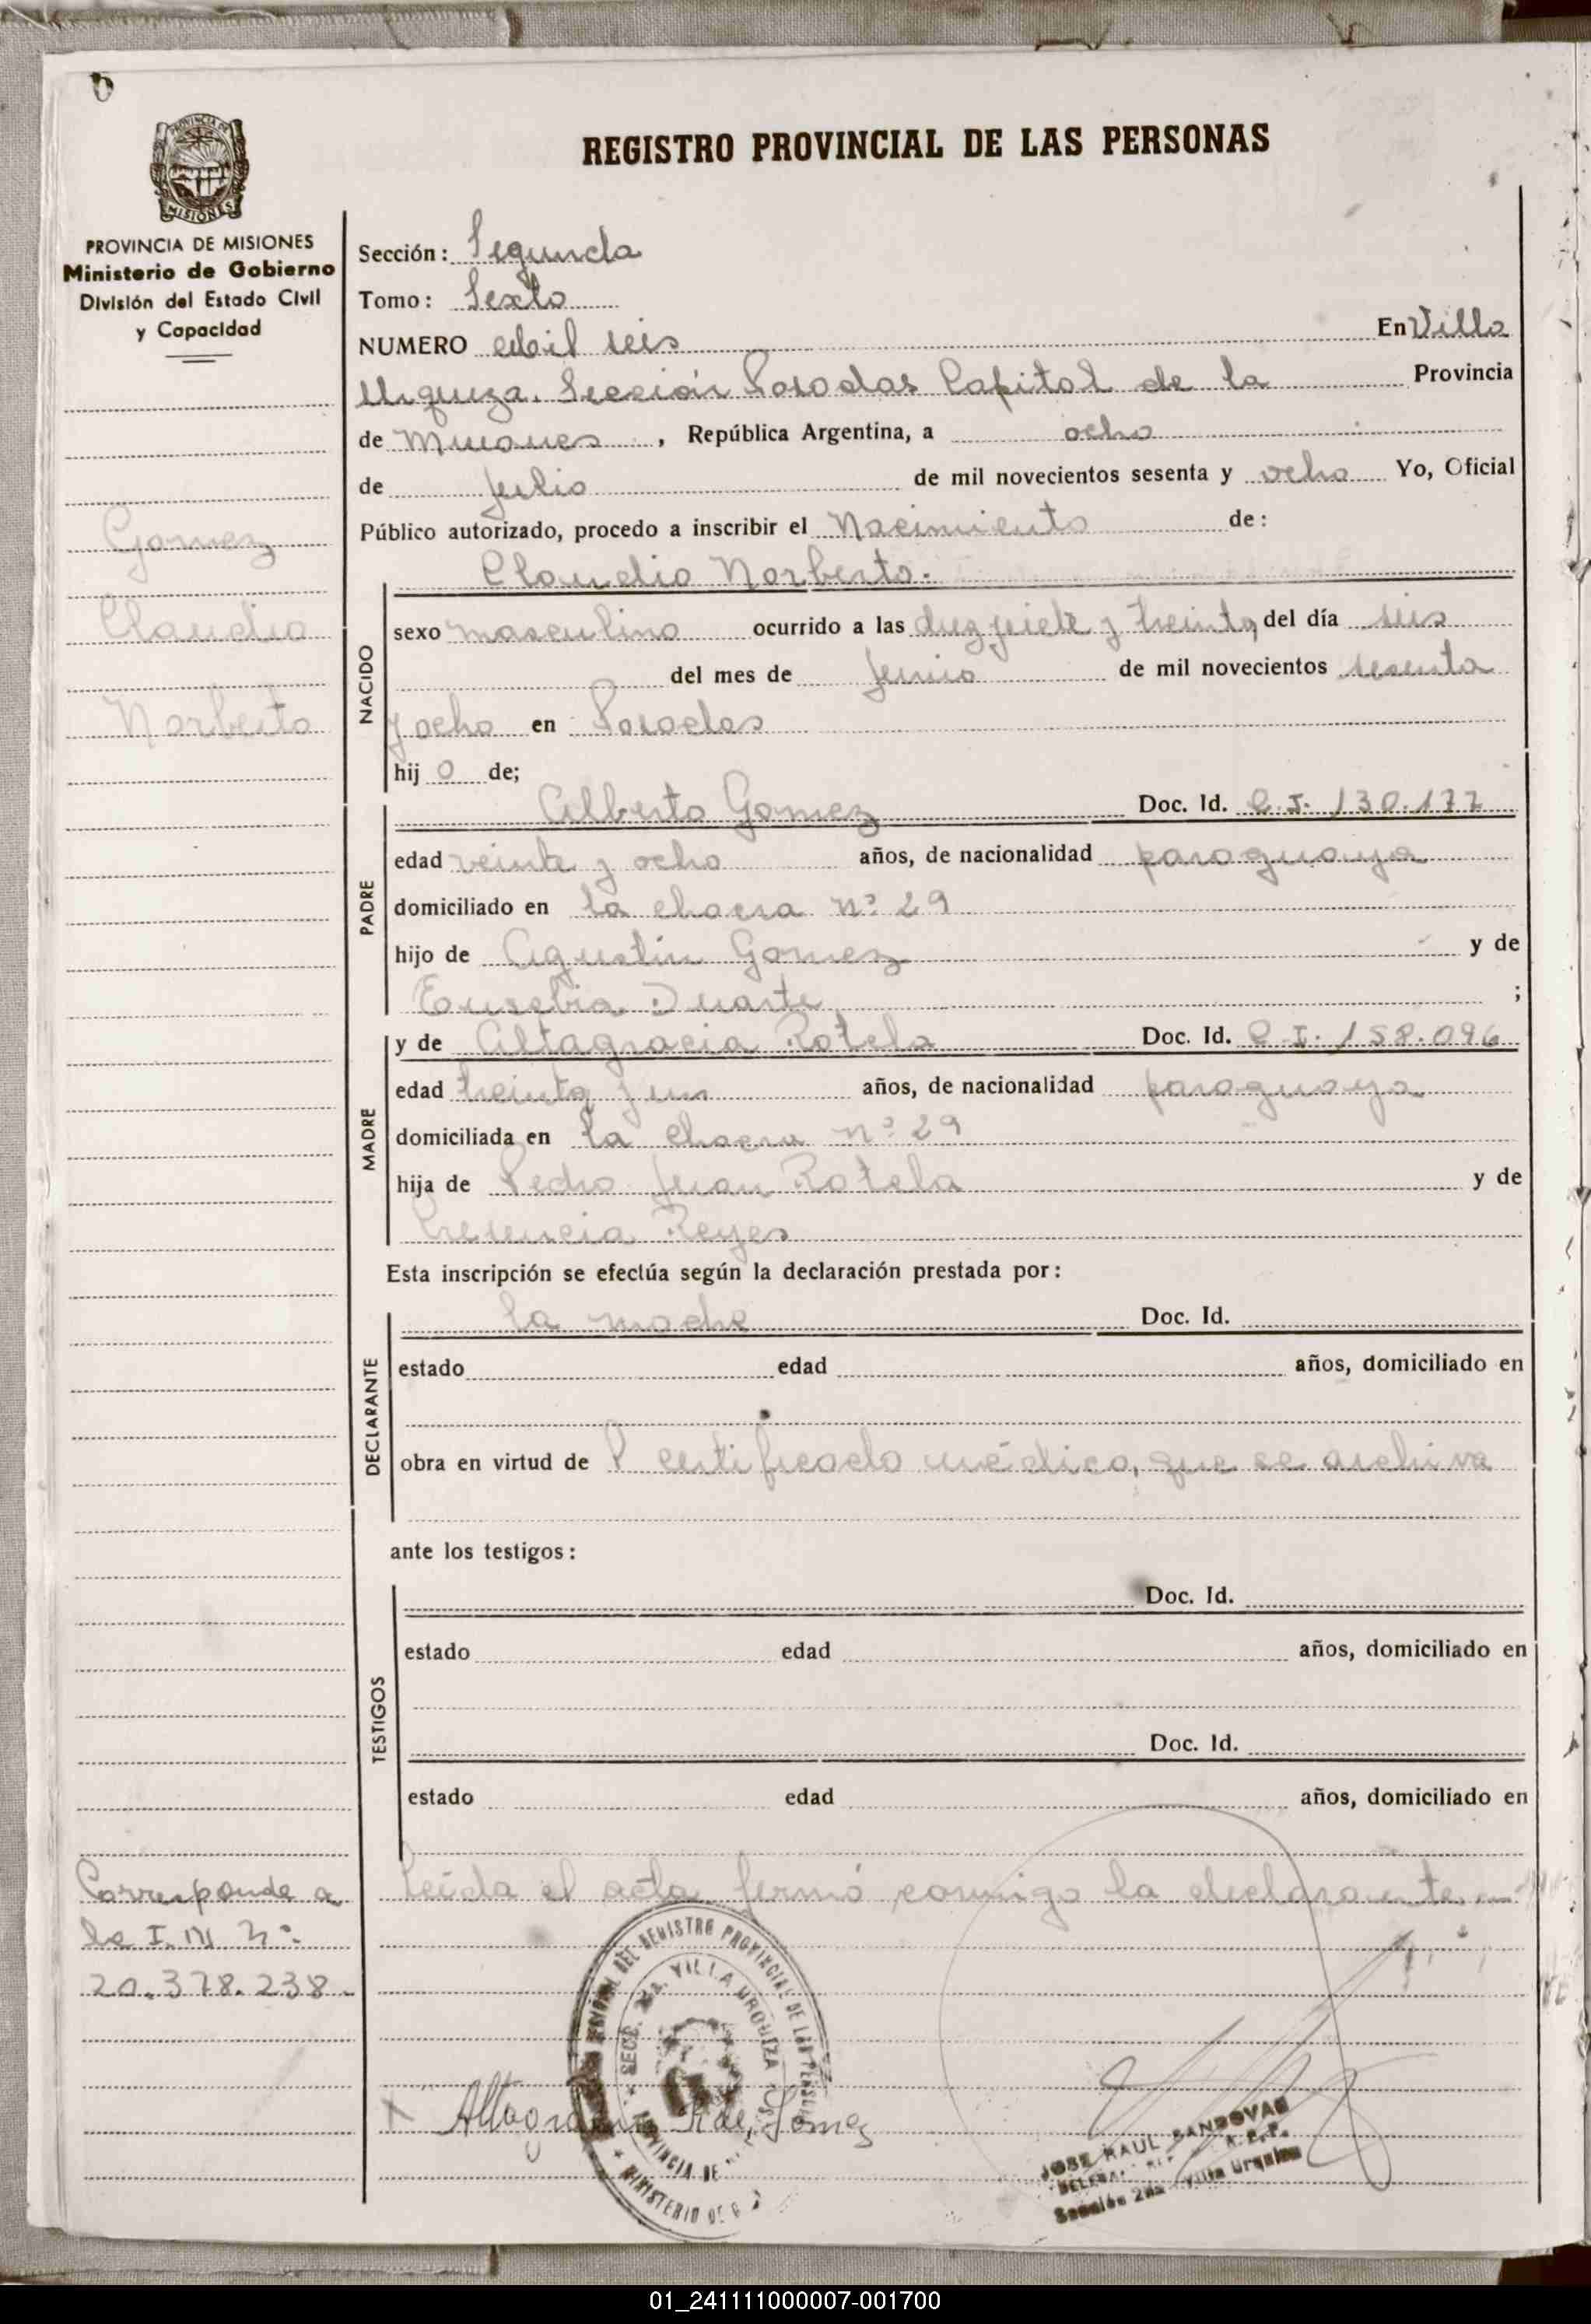 REGISTRO PROVINCIAL DE LAS PERSONAS
PROVINCIA DE MISIONES
Ministerio de Gobierno
División del Estado Civil
y Capacidad
Gomez
Claudio
Norberto
Sección: Segunda
Tomo: Sexto
NUMERO mil seis En Villa
Urquiza. Sección Posadas Capital de la Provincia
de Misiones, República Argentina, a ocho
de Julio de mil novecientos sesenta y ocho Yo, Oficial
Público autorizado, procedo a inscribir el Nacimiento de:
Claudio Norberto.
NACIDO
sexo masculino ocurrido a las diez siete y treinta, del día seis
del mes de Junio de mil novecientos sesenta
y ocho en Posadas
hij o de;
PADRE
Alberto Gomez Doc. Id. C.I. 130.177
edad veinte y ocho años, de nacionalidad paraguaya
domiciliado en la chacra nº 29
hijo de Agustin Gomez y de
Eusebia Duarte ;
MADRE
y de Altagracia Rotela Doc. Id. C.I. 158.096
edad treinta y un años, de nacionalidad paraguaya
domiciliada en la chacra nº 29
hija de Pedro Juan Rotela y de
Reyes
Esta inscripción se efectúa según la declaración prestada por:
DECLARANTE
la madre Doc. Id.
estado edad años, domiciliado en
obra en virtud de certificado médico, que se archiva
ante los testigos:
TESTIGOS
Doc. Id.
estado edad años, domiciliado en
Doc. Id.
estado edad años, domiciliado en
Leída el acta firmó conmigo la declarante
Corresponde a
la I. M nº
20.378.238.
SECC. 2da. VILLA URQUIZA
REGISTRO PROVINCIAL DE LAS PERSONAS
PROVINCIA DE
MINISTERIO DE G
Altagracia R de Gomez
JOSE RAUL SANDOVAL
Sección 2da Villa Urquiza
01_241111000007-001700